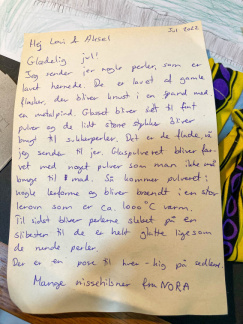 Jul 2022
Hej Loui & Aksel
Glædelig jul!
Jeg sender jer nogle perler, som er
lavet hernede. De er lavet af gamle
flasker, der bliver knust i en spand med
en metalpind. Glasset bliver helt til fint
pulver og de lidt større stykker bliver
brugt til sukkerperler. Det er de flade, vi
jeg sender til jer. Glaspulveret bliver far-
vet med noget pulver som man ikke må
bruge til mad. Så kommer pulveret i
nogle lerforme og bliver brændt i en stor
lerovn som er ca. 1000°C varm.
Til sidst bliver perlerne slebet på en
slibesten til de er helt glatte ligesom
de runde perler.
Der er en pose til hver - kig på sedlerne.
Mange nissehilsner fra NORA